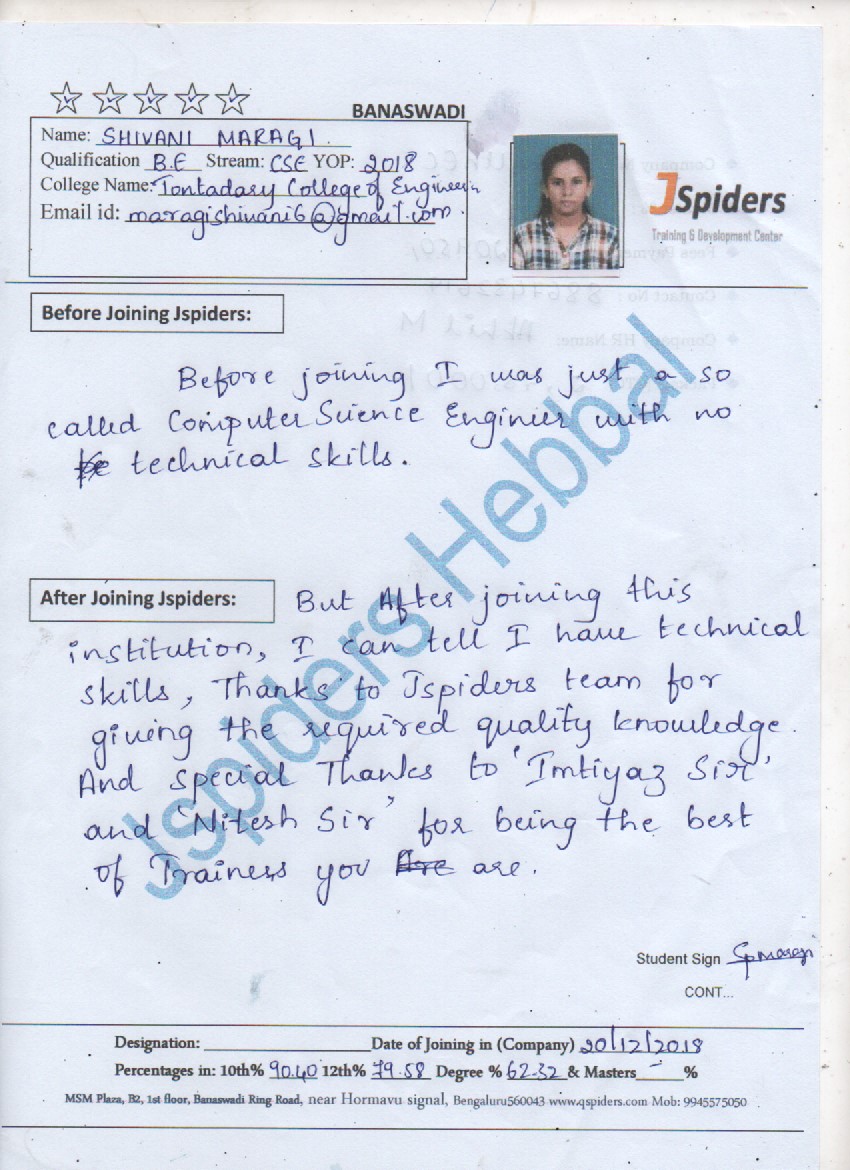 BANASWADI
Name: SHIVANI MARAGI.
Qualification B.E Stream: CSE YOP: 2018
College Name: Tontadary College of Engineerin
Email id: maragishivani6@gmail.com.
JSpiders
Training & Development Center
Before Joining Jspiders:
Before joining I was just a so
called Computer Science Engineer with no
technical skills.
After Joining Jspiders: But After joining this
institution, I can tell I have technical
skills, Thanks to Jspiders team for
giving the required quality knowledge.
And special Thanks to 'Imtiyaz Sir'
and 'Nitesh Sir' for being the best
of Trainess you are.
Jspiders Hebbal
Student Sign
CONT...
Designation: Date of Joining in (Company) 20/12/2018
Percentages in: 10th% 90.40 12th% 79.58 Degree % 62.32 & Masters - %
MSM Plaza, B2, 1st floor, Banaswadi Ring Road, near Hormavu signal, Bengaluru560043 www.qspiders.com Mob: 9945575050